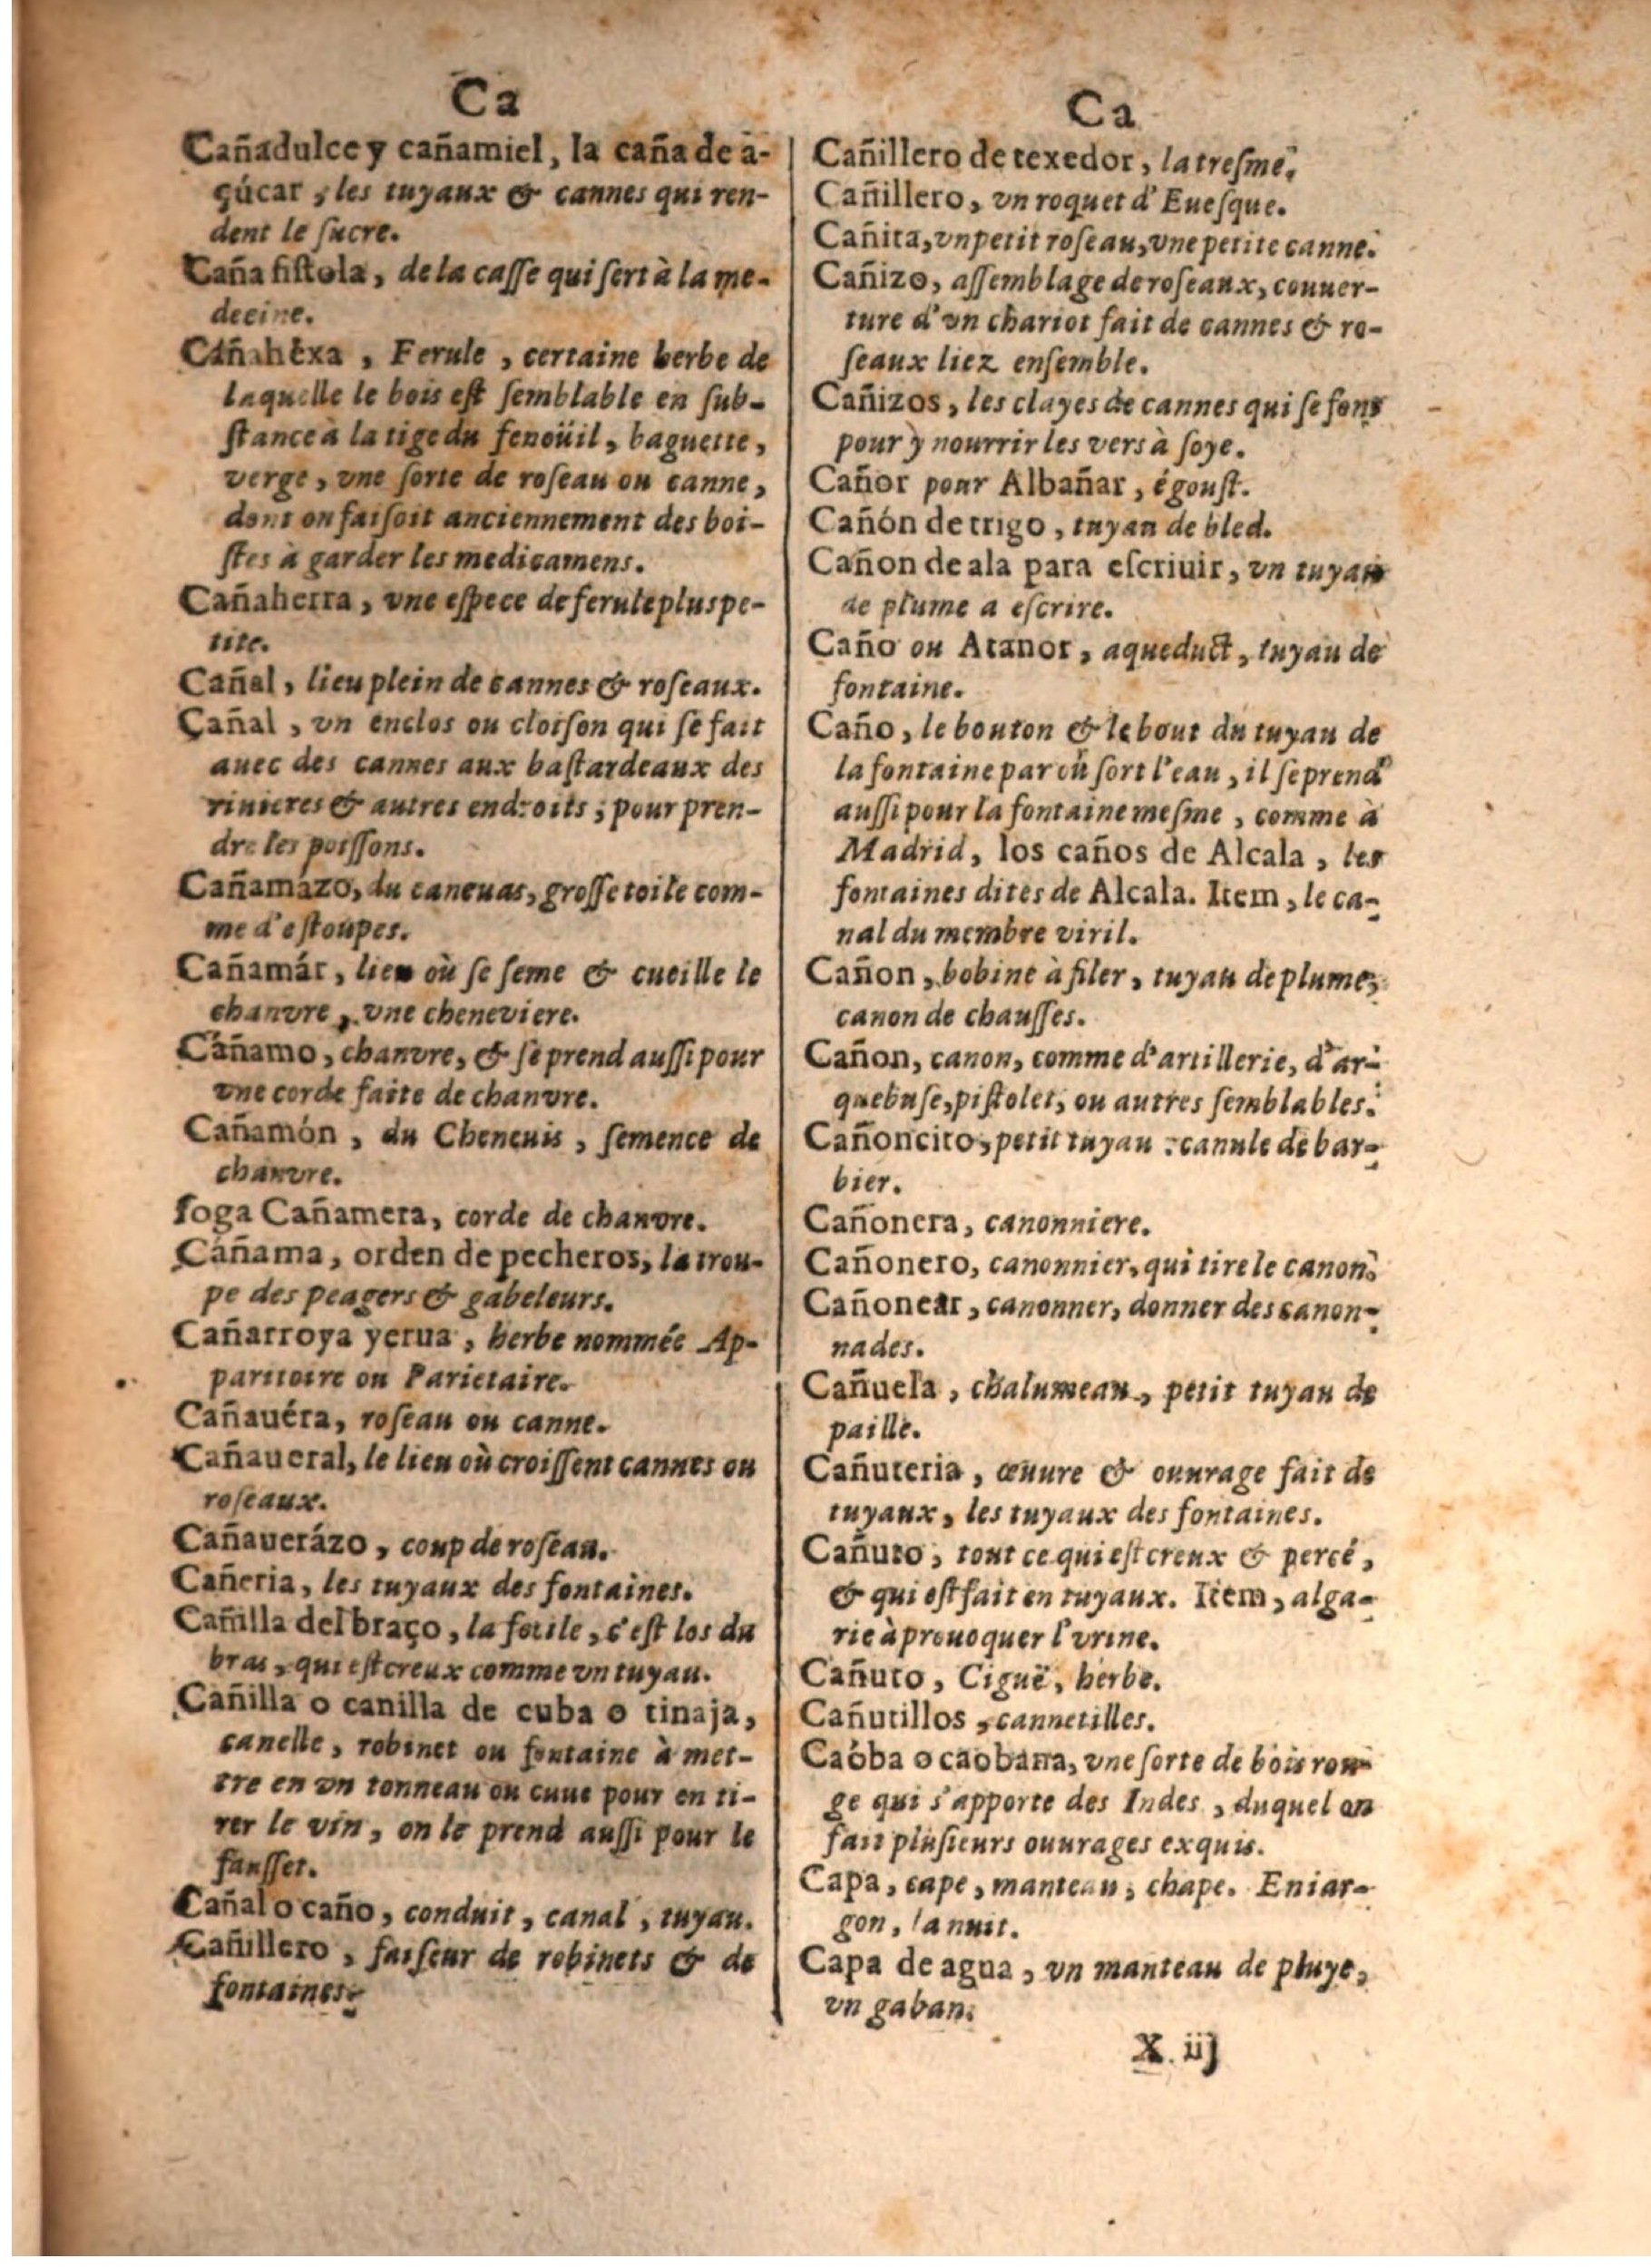 Ca
Cañadulce y cañamiel, la caña de a-
çúcar, les tuyaux & cannes qui ren-
dent le ſucre.
Caña fiſtola, de la caſſe qui ſert à la me-
decine.
Cañahexa, Ferule, certaine herbe de
laquelle le bois eſt ſemblable en ſub-
ſtance à la tige du fenoüil, baguette,
verge, vne ſorte de roſeau ou canne,
dont on faiſoit anciennement des boi-
ſtes à garder les medicamens.
Cañaherra, vne eſpece de ferule plus pe-
tite.
Cañal, lieu plein de cannes & roſeaux.
Cañal, vn enclos ou cloiſon qui ſe fait
auec des cannes aux baſtardeaux des
riuieres & autres endroits, pour pren-
dre les poiſſons.
Cañamázo, du caneuas, groſſe toile com-
me d'eſtoupes.
Cañamár, lieu où ſe ſeme & cueille le
chanvre, vne cheneviere.
Cáñamo, chanvre, & ſe prend auſſi pour
vne corde faite de chanvre.
Cañamón, du Cheneuis, ſemence de
chanvre.
ſoga Cañamera, corde de chanvre.
Cáñama, orden de pecheros, la trou-
pe des peagers & gabeleurs.
Cañarroya yerua, herbe nommée Ap-
paritoire ou Parietaire.
Cañauéra, roſeau ou canne.
Cañaueral, le lieu où croiſſent cannes ou
roſeaux.
Cañauerázo, coup de roſeau.
Cañeria, les tuyaux des fontaines.
Cañilla del braço, la focile, c'eſt los du
bras, qui eſt creux comme vn tuyau.
Cañilla o canilla de cuba o tinaja,
canelle, robinet ou fontaine à met-
tre en vn tonneau ou cuue pour en ti-
rer le vin, on le prend auſſi pour le
fauſſet.
Cañal o caño, conduit, canal, tuyau.
Cañillero, faiſeur de robinets & de
fontaines.
Ca
Cañillero de texedor, la treſme.
Cañillero, vn roquet d'Eueſque.
Cañita, vn petit roſeau, vne petite canne.
Cañizo, aſſemblage de roſeaux, couuer-
ture d'vn chariot fait de cannes & ro-
ſeaux liez enſemble.
Cañizos, les clayes de cannes qui ſe font
pour y nourrir les vers à ſoye.
Cañor pour Albañar, égouſt.
Cañón de trigo, tuyau de bled.
Cañon de ala para eſcriuir, vn tuyau
de plume a eſcrire.
Caño ou Atanor, aqueduct, tuyau de
fontaine.
Caño, le bouton & le bout du tuyau de
la fontaine par où ſort l'eau, il ſe prend
auſſi pour la fontaine meſme, comme à
Madrid, los caños de Alcala, les
fontaines dites de Alcala. Item, le ca-
nal du membre viril.
Cañon, bobine à filer, tuyau de plume,
canon de chauſſes.
Cañon, canon, comme d'artillerie, d'ar-
quebuſe, piſtolet, ou autres ſemblables.
Cañoncito, petit tuyau : canule de bar-
bier.
Cañonera, canonniere.
Cañonero, canonnier, qui tire le canon.
Cañonear, canonner, donner des canon-
nades.
Cañuela, chalumeau, petit tuyau de
paille.
Cañuteria, œuure & ouurage fait de
tuyaux, les tuyaux des fontaines.
Cañuto, tout ce qui eſt creux & percé,
& qui eſt fait en tuyaux. Item, alga-
rie à prouoquer l'vrine.
Cañuto, Ciguë, herbe.
Cañutillos, cannetilles.
Caóba o caobana, vne ſorte de bois rou-
ge qui s'apporte des Indes, duquel on
fait pluſieurs ouurages exquis.
Capa, cape, manteau, chape. En iar-
gon, la nuit.
Capa de agua, vn manteau de pluye,
vn gaban.
X iij